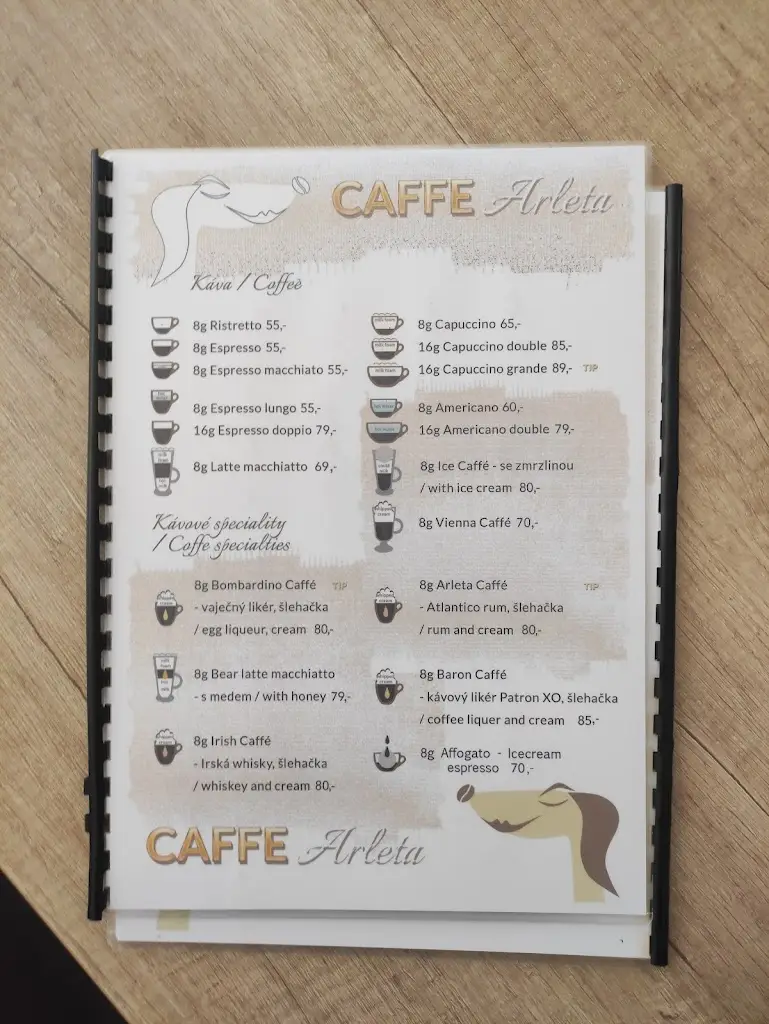 CAFFE Arleta
Káva / Coffeè
8g Ristretto 55,-
8g Espresso 55,-
8g Espresso macchiato 55,-
8g Espresso lungo 55,-
16g Espresso doppio 79,-
8g Latte macchiatto 69,-
8g Capuccino 65,-
16g Capuccino double 85,-
16g Capuccino grande 89,- TIP
8g Americano 60,-
16g Americano double 79,-
8g Ice Caffé - se zmrzlinou
/ with ice cream 80,-
8g Vienna Caffé 70,-
Kávové speciality
/ Coffe specialties
8g Bombardino Caffé TIP
- vaječný likér, šlehačka
/ egg liqueur, cream 80,-
8g Bear latte macchiatto
- s medem / with honey 79,-
8g Irish Caffé
- Irská whisky, šlehačka
/ whiskey and cream 80,-
8g Arleta Caffé TIP
- Atlantico rum, šlehačka
/ rum and cream 80,-
8g Baron Caffé
- kávový likér Patron XO, šlehačka
/ coffee liquer and cream 85,-
8g Affogato - Icecream
espresso 70,-
CAFFE Arleta